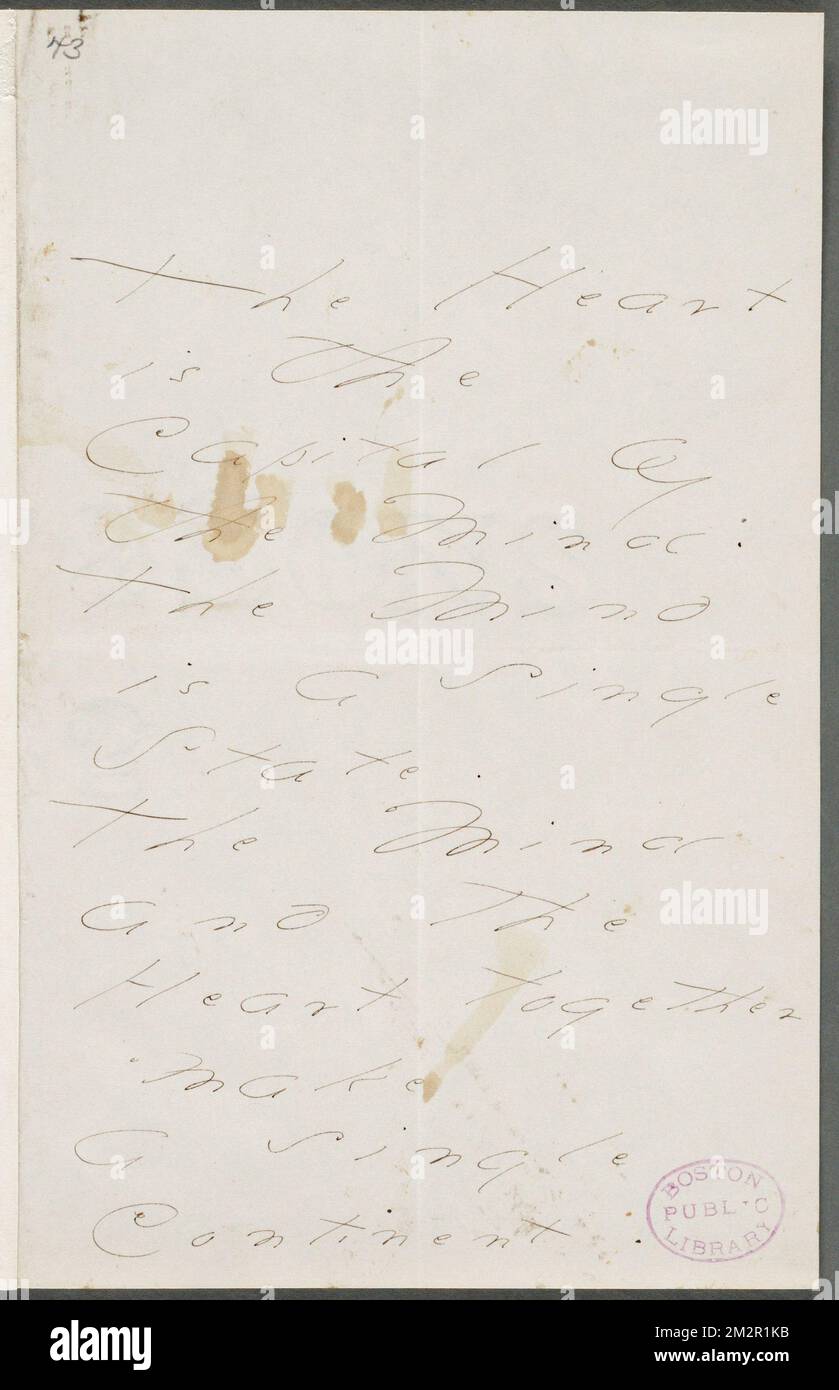 43
The Heart
is the
Capital of
the Mind.
The Mind
is a single
State.
The Mind
and the
Heart together
make
a single
Continent.
BOSTON
PUBLIC
LIBRARY
alamy
alamy
alamy
alamy
Image ID: 2M2R1KB
www.alamy.com